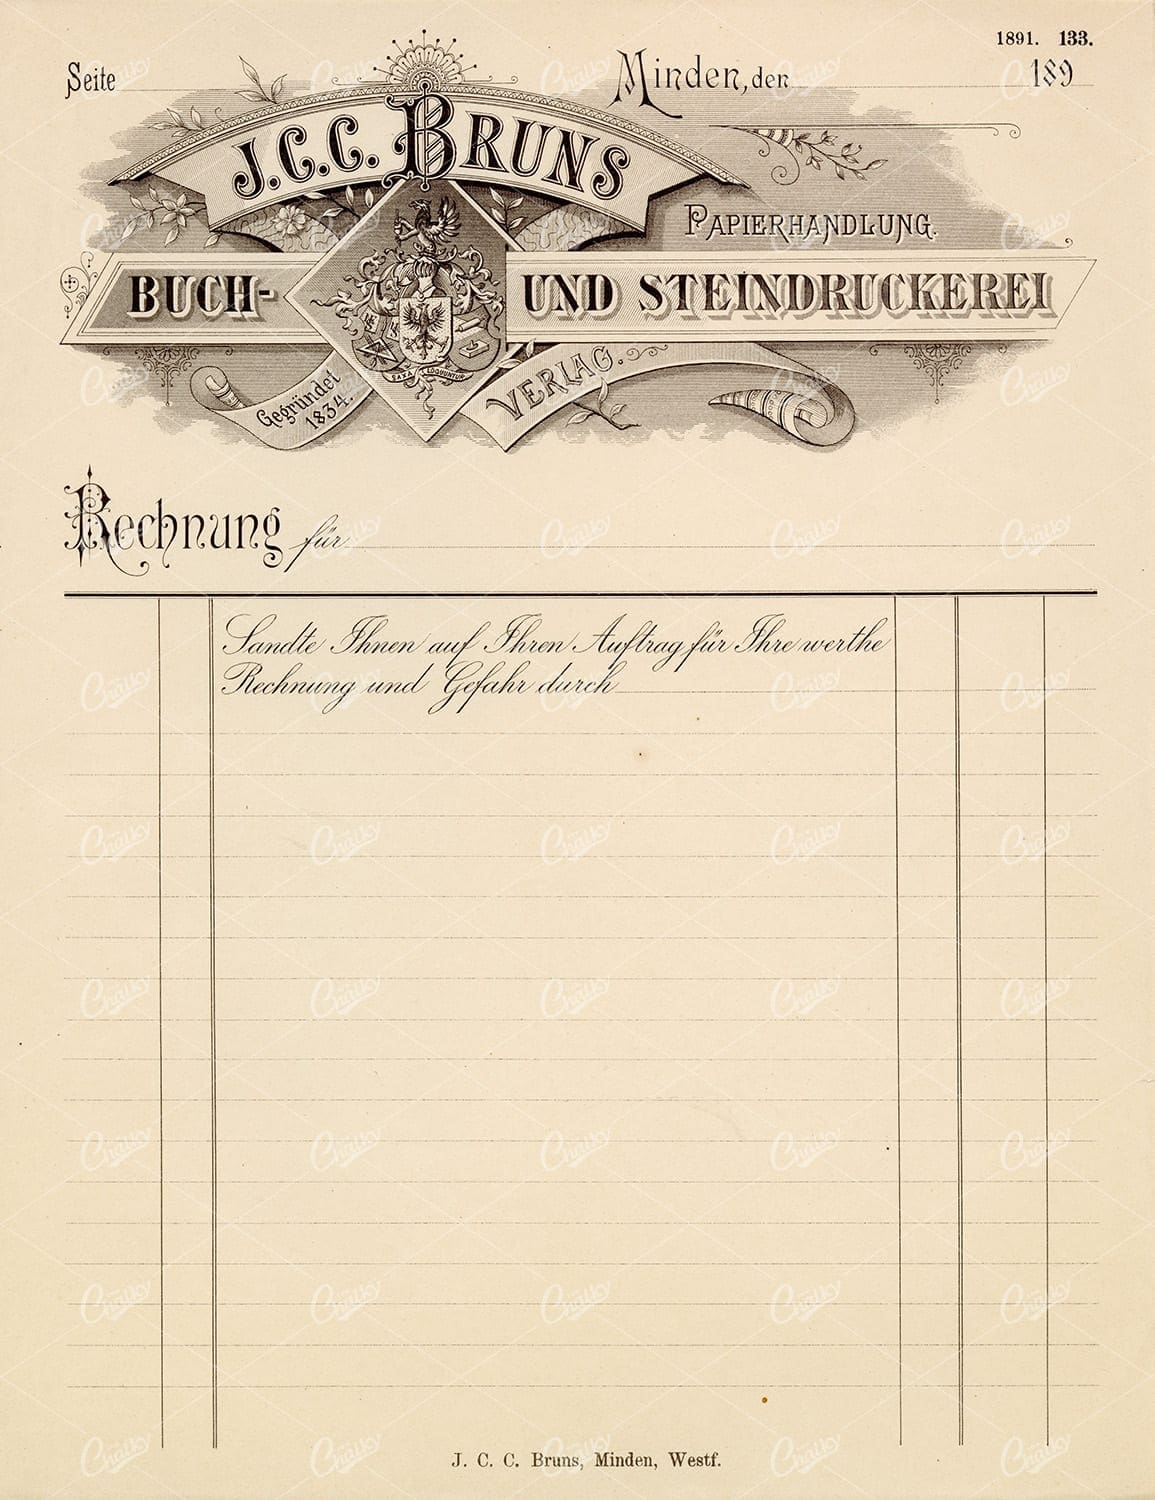 1891. 133.
Seite
Minden, den 189
J.C.C. BRUNS
PAPIERHANDLUNG.
BUCH- UND STEINDRUCKEREI
SAXA LOQUUNTUR
Gegründet
1834.
VERLAG.
Rechnung für
Sandte Ihnen auf Ihren Auftrag für Ihre werthe
Rechnung und Gefahr durch
J. C. C. Bruns, Minden, Westf.
Chalky